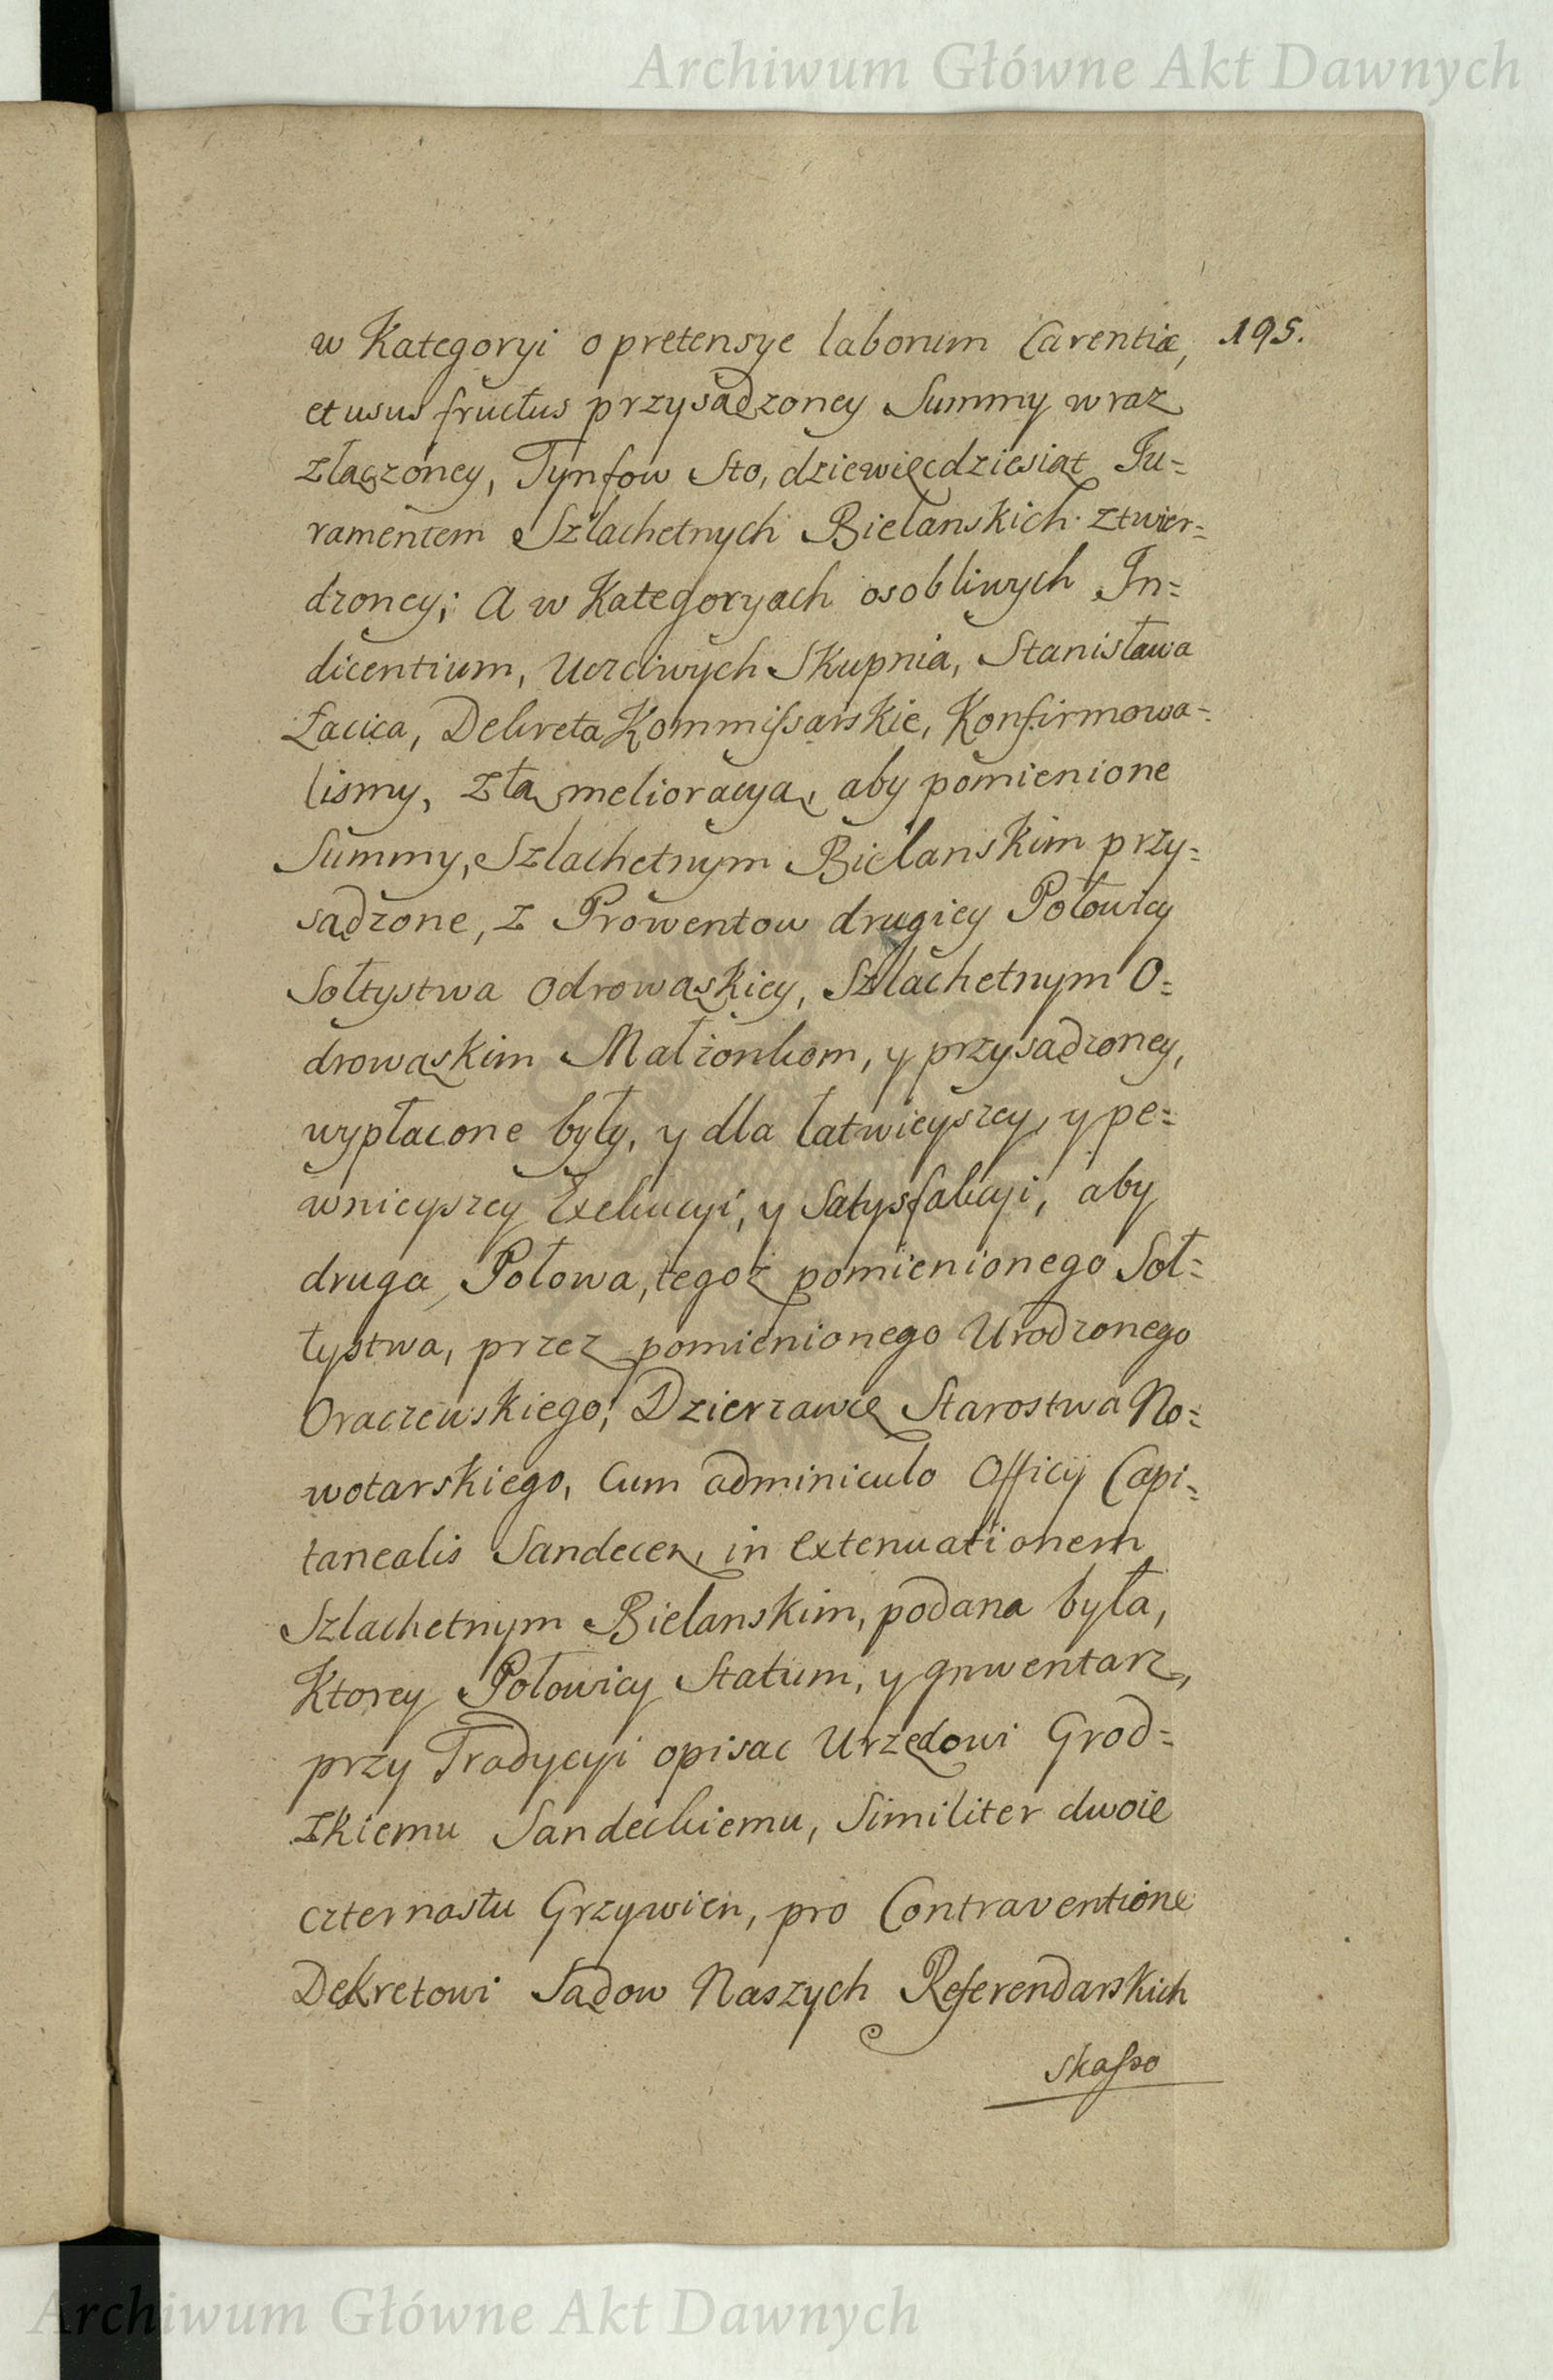 Archiwum Główne Akt Dawnych
w Kategoryi o pretensye laborum Carentiæ, 195.
et usus fructus przysądzoney Summy wraz
złączoney, Tynfow Sto, dziewięcdziesiąt Iu=
ramentem Szlachetnych Bielanskich ztwier=
dzoney; A w Kategoryach osobliwych In=
dicentium, Uczciwych Skupnia, Stanisława
Łacica, Dekreta Kommissarskie, Konfirmowa=
lismy, z tą melioracyą, aby pomienione
Summy, Szlachetnym Bielanskim przy=
sądzone, z Prowentow drugiey Połowicy
Sołtystwa Odrowąskiey, Szlachetnym O=
drowąskim Małżonkom, y przysądzoney,
wypłacone były, y dla łatwieyszey, y pe=
wnieyszey Exekucyi, y Satysfakcyi, aby
druga Połowa, tegoż pomienionego Soł=
tystwa, przez pomienionego Urodzonego
Oraczewskiego, Dzierzawcę Starostwa No=
wotarskiego, Cum adminiculo Officij Capi=
tanealis Sandecen, in extenuationem
Szlachetnym Bielanskim, podana była,
Ktorey Połowicy Statum, y Inwentarz,
przy Tradycyi opisac Urzędowi Grod=
zkiemu Sandeckiemu, Similiter dwoie
czternastu Grzywien, pro Contraventione
Dekretowi Sądow Naszych Referendarskich
skasso
Archiwum Główne Akt Dawnych